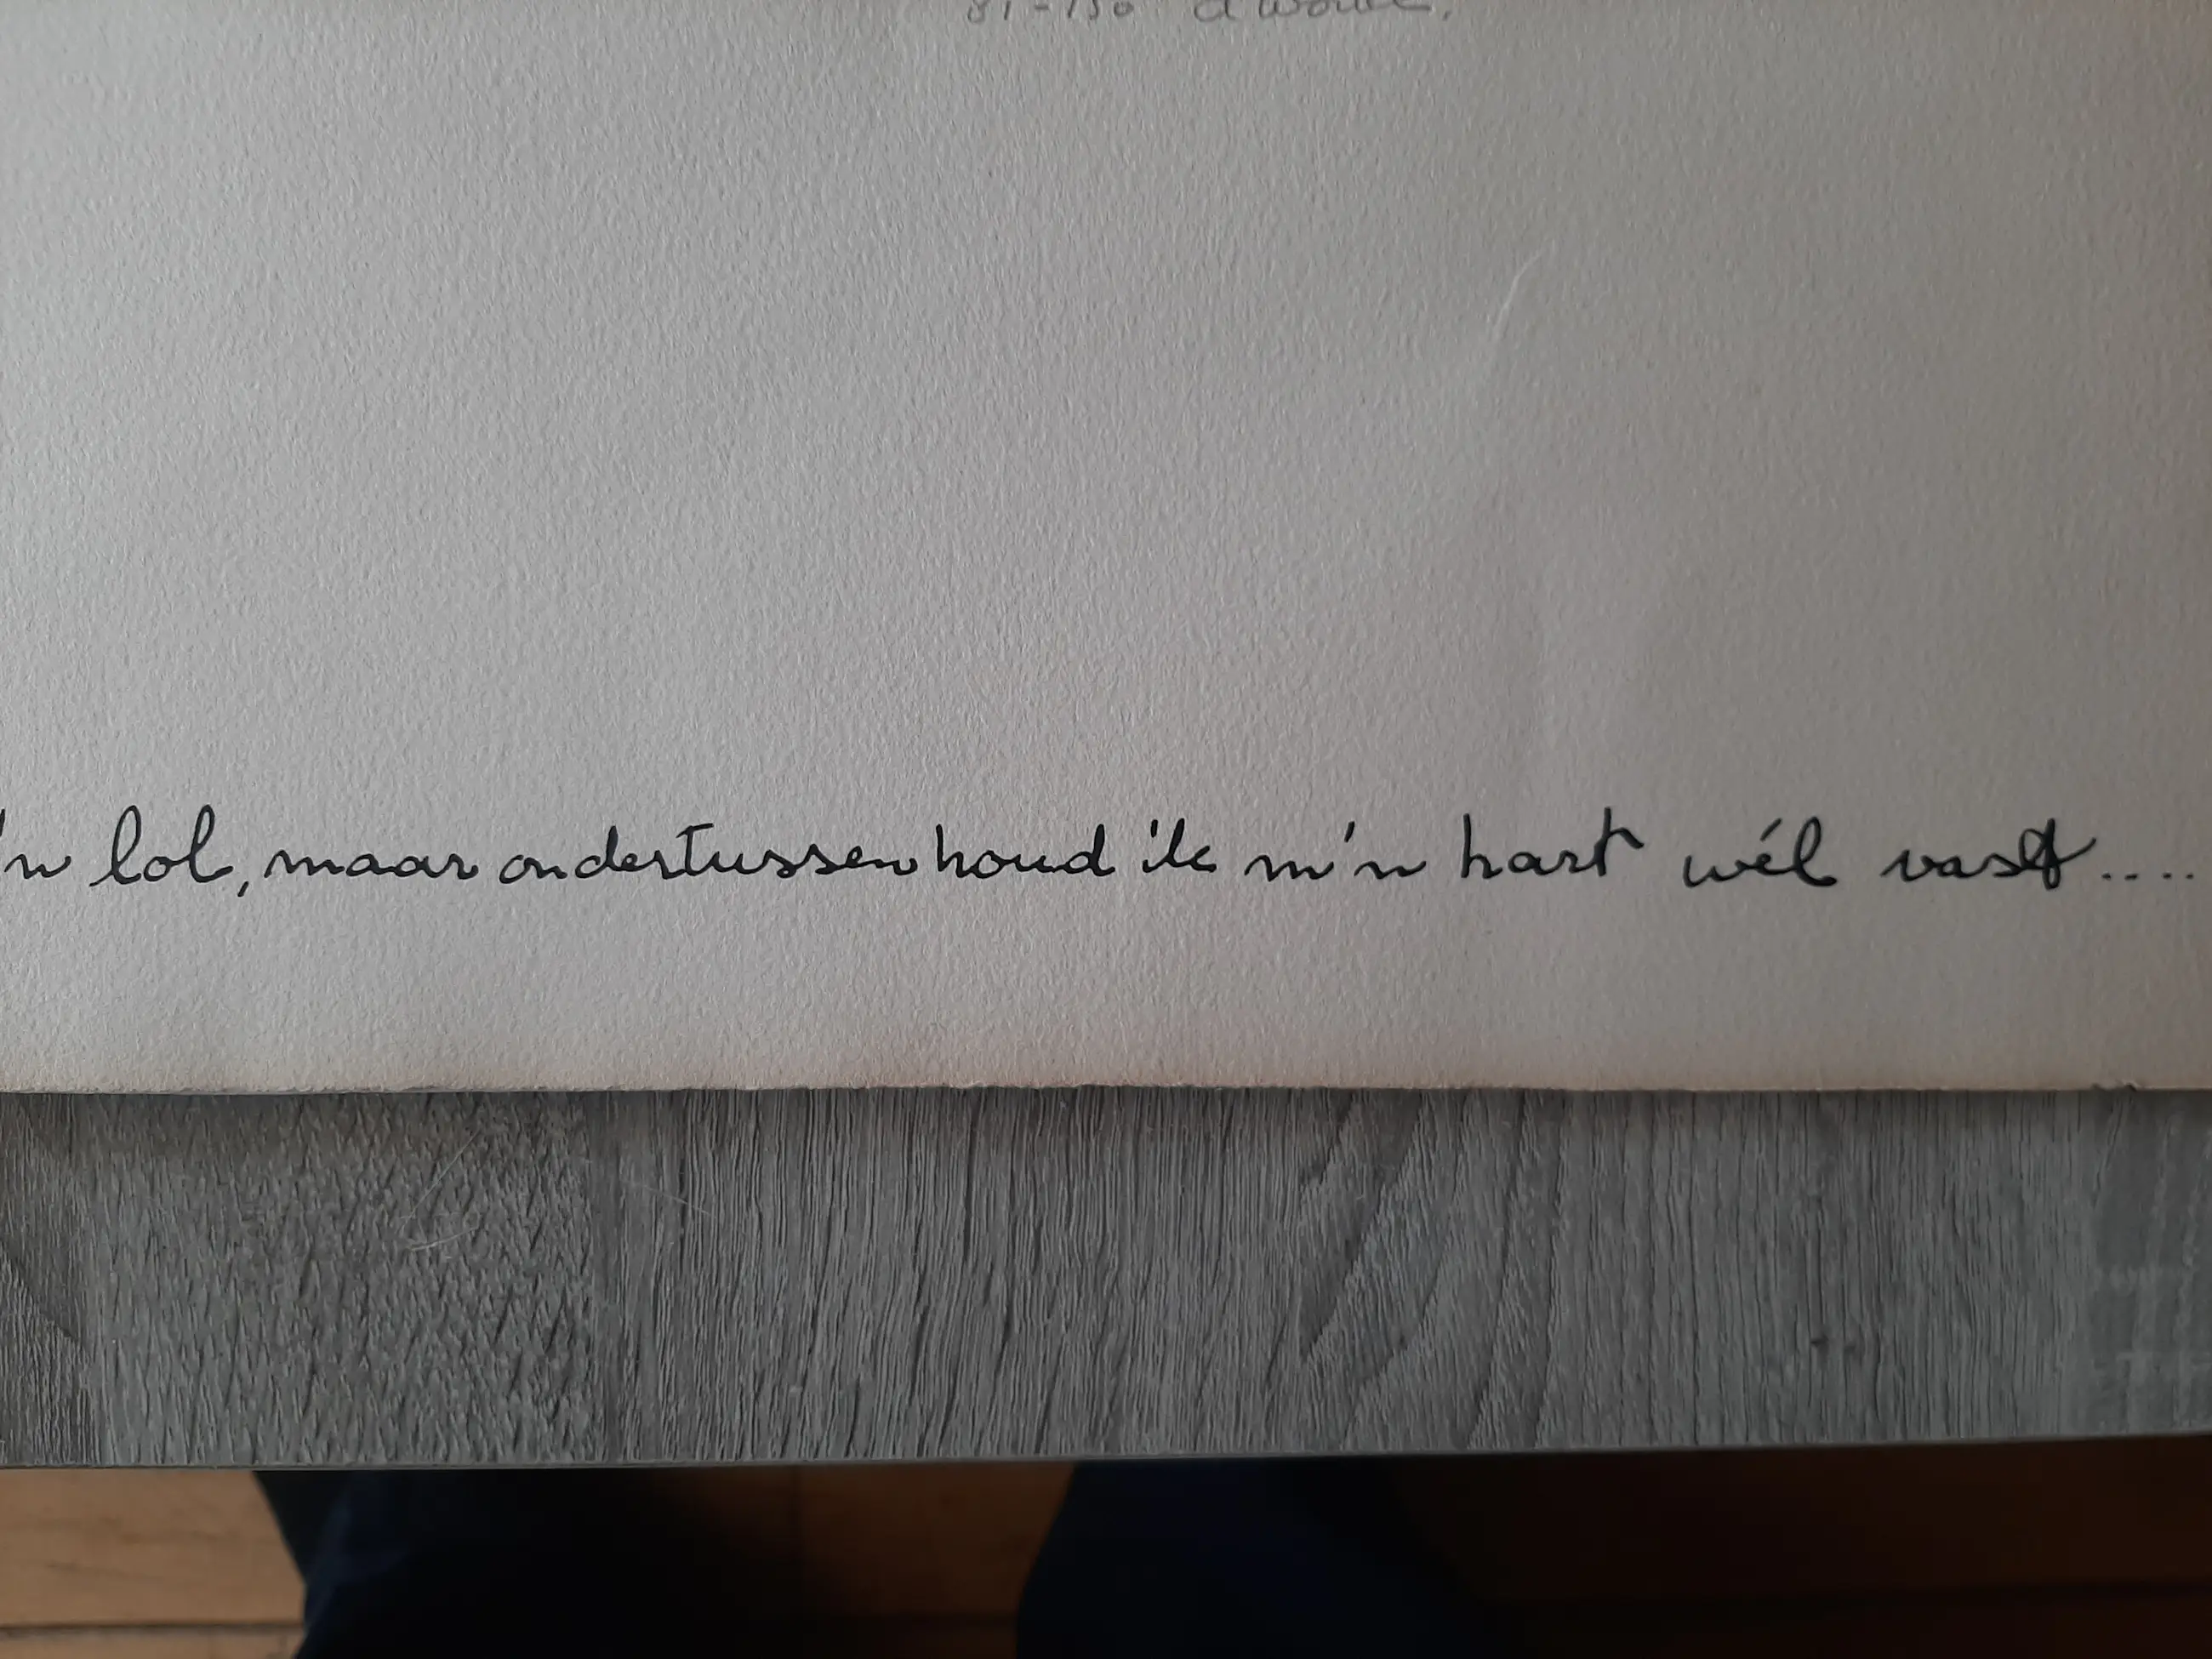 'n lol, maar ondertussen houd ik m'n hart wél vast....